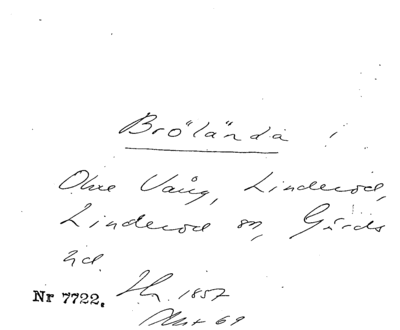 Brölända
Olne Vång, Linderöd,
Linderöd sn, Gärds
hd.
Nr 7722. Hr. 1857
69